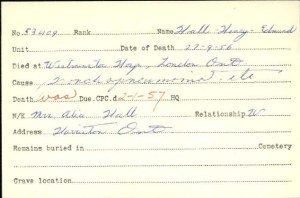 No 53409 Rank Name Hall Henry Edmund
Unit Date of Death 27-9-56
Died at Westminster Hosp, London Ont
Cause Bronchopneumonia - etc
Death was Due. CPC. d 2-1-57 HQ
N/K Mrs Alice Hall Relationship W
Address Ont
Remains buried in Cemetery
Grave location